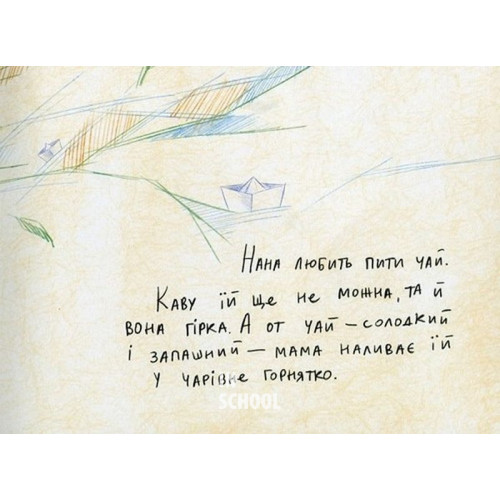 Нана любить пити чай.
Каву їй ще не можна, та й
вона гірка. А от чай – солодкий
і запашний – мама наливає їй
у чарівне горнятко.
SCHOOL